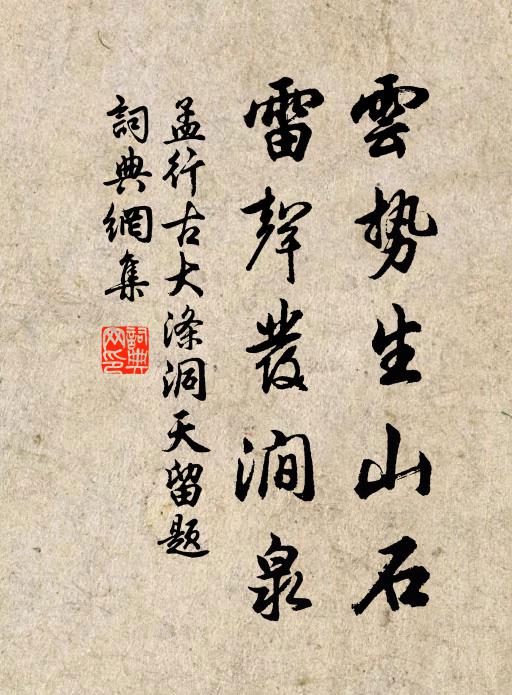 雲勢生山石
雷聲發澗泉
孟行古大滌洞天留題
詞典網集
詞典
网印